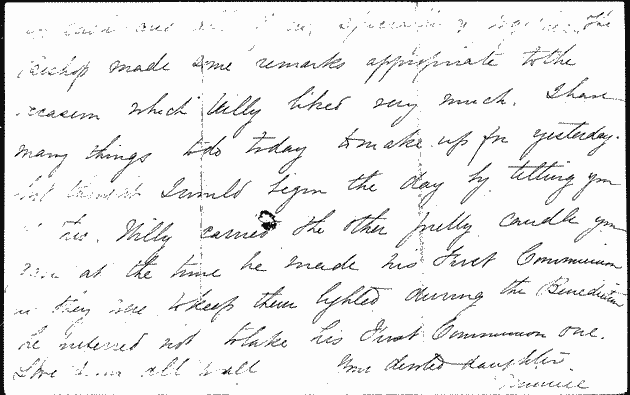 The
Bishop made some remarks appropriate to the
occasion which Willy liked very much. I have
many things to do today to make up for yesterday.
but thought I would begin the day by telling you
this. Willy carried the other pretty candle you
gave at the time he made his First Communion
as they were to keep them lighted during the Benediction
he preferred not to take his First Communion one.
Love to all Your devoted daughter.